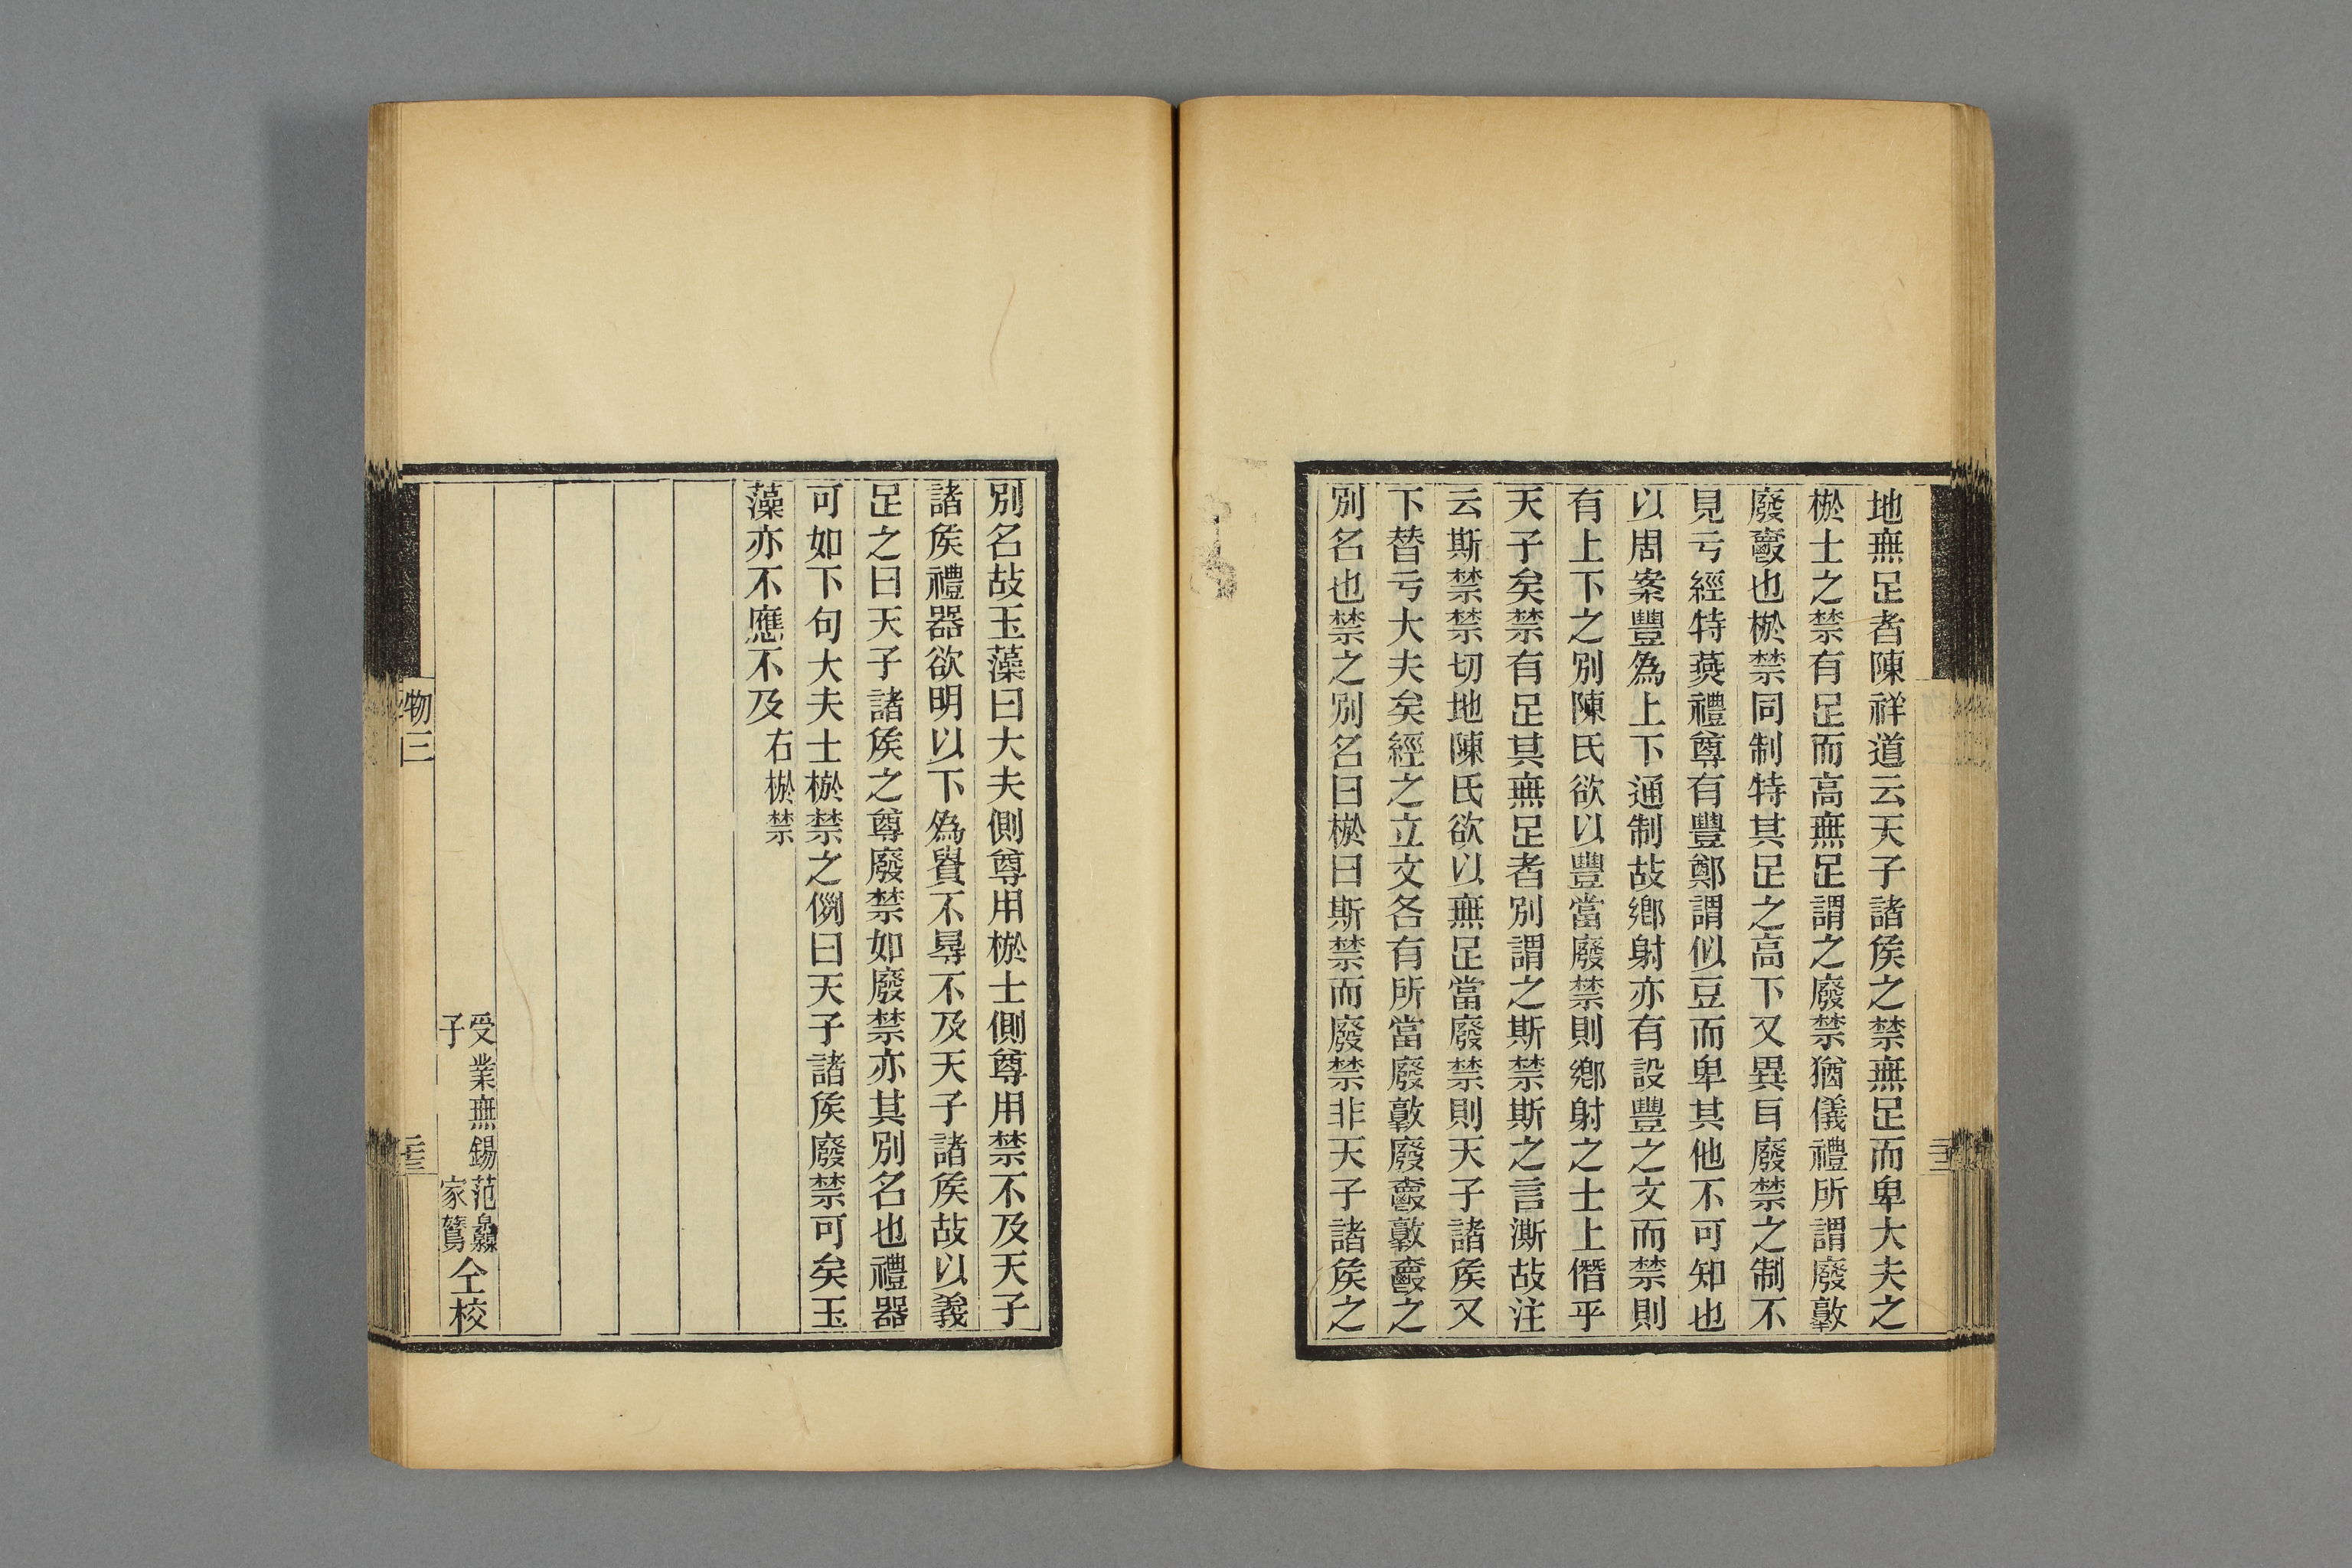 地無足者陳祥道云天子諸矦之禁無足而卑大夫之
棜士之禁有足而高無足謂之廢禁猶儀禮所謂廢敦
廢爵也棜禁同制特其足之高下又異耳廢禁之制不
見亏經特燕禮尊有豐鄭謂似豆而卑其他不可知也
以周案豐爲上下通制故鄉射亦有設豐之文而禁則
有上下之別陳氏欲以豐當廢禁則鄉射之士上僭乎
天子矣禁有足其無足者別謂之斯禁斯之言澌故注
云斯禁禁切地陳氏欲以無足當廢禁則天子諸矦又
下替亏大夫矣經之立文各有所當廢敦廢爵敦爵之
別名也禁之別名曰棜曰斯禁而廢禁非天子諸矦之
別名故玉藻曰大夫側尊用棜士側尊用禁不及天子
諸矦禮器欲明以下爲貴不㝵不及天子諸矦故以義
足之曰天子諸矦之尊廢禁如廢禁亦其別名也禮器
可如下句大夫士棜禁之例曰天子諸矦廢禁可矣玉
藻亦不應不及 右棜禁
受業無錫范
子 家鵞 仝校
物三
二十三